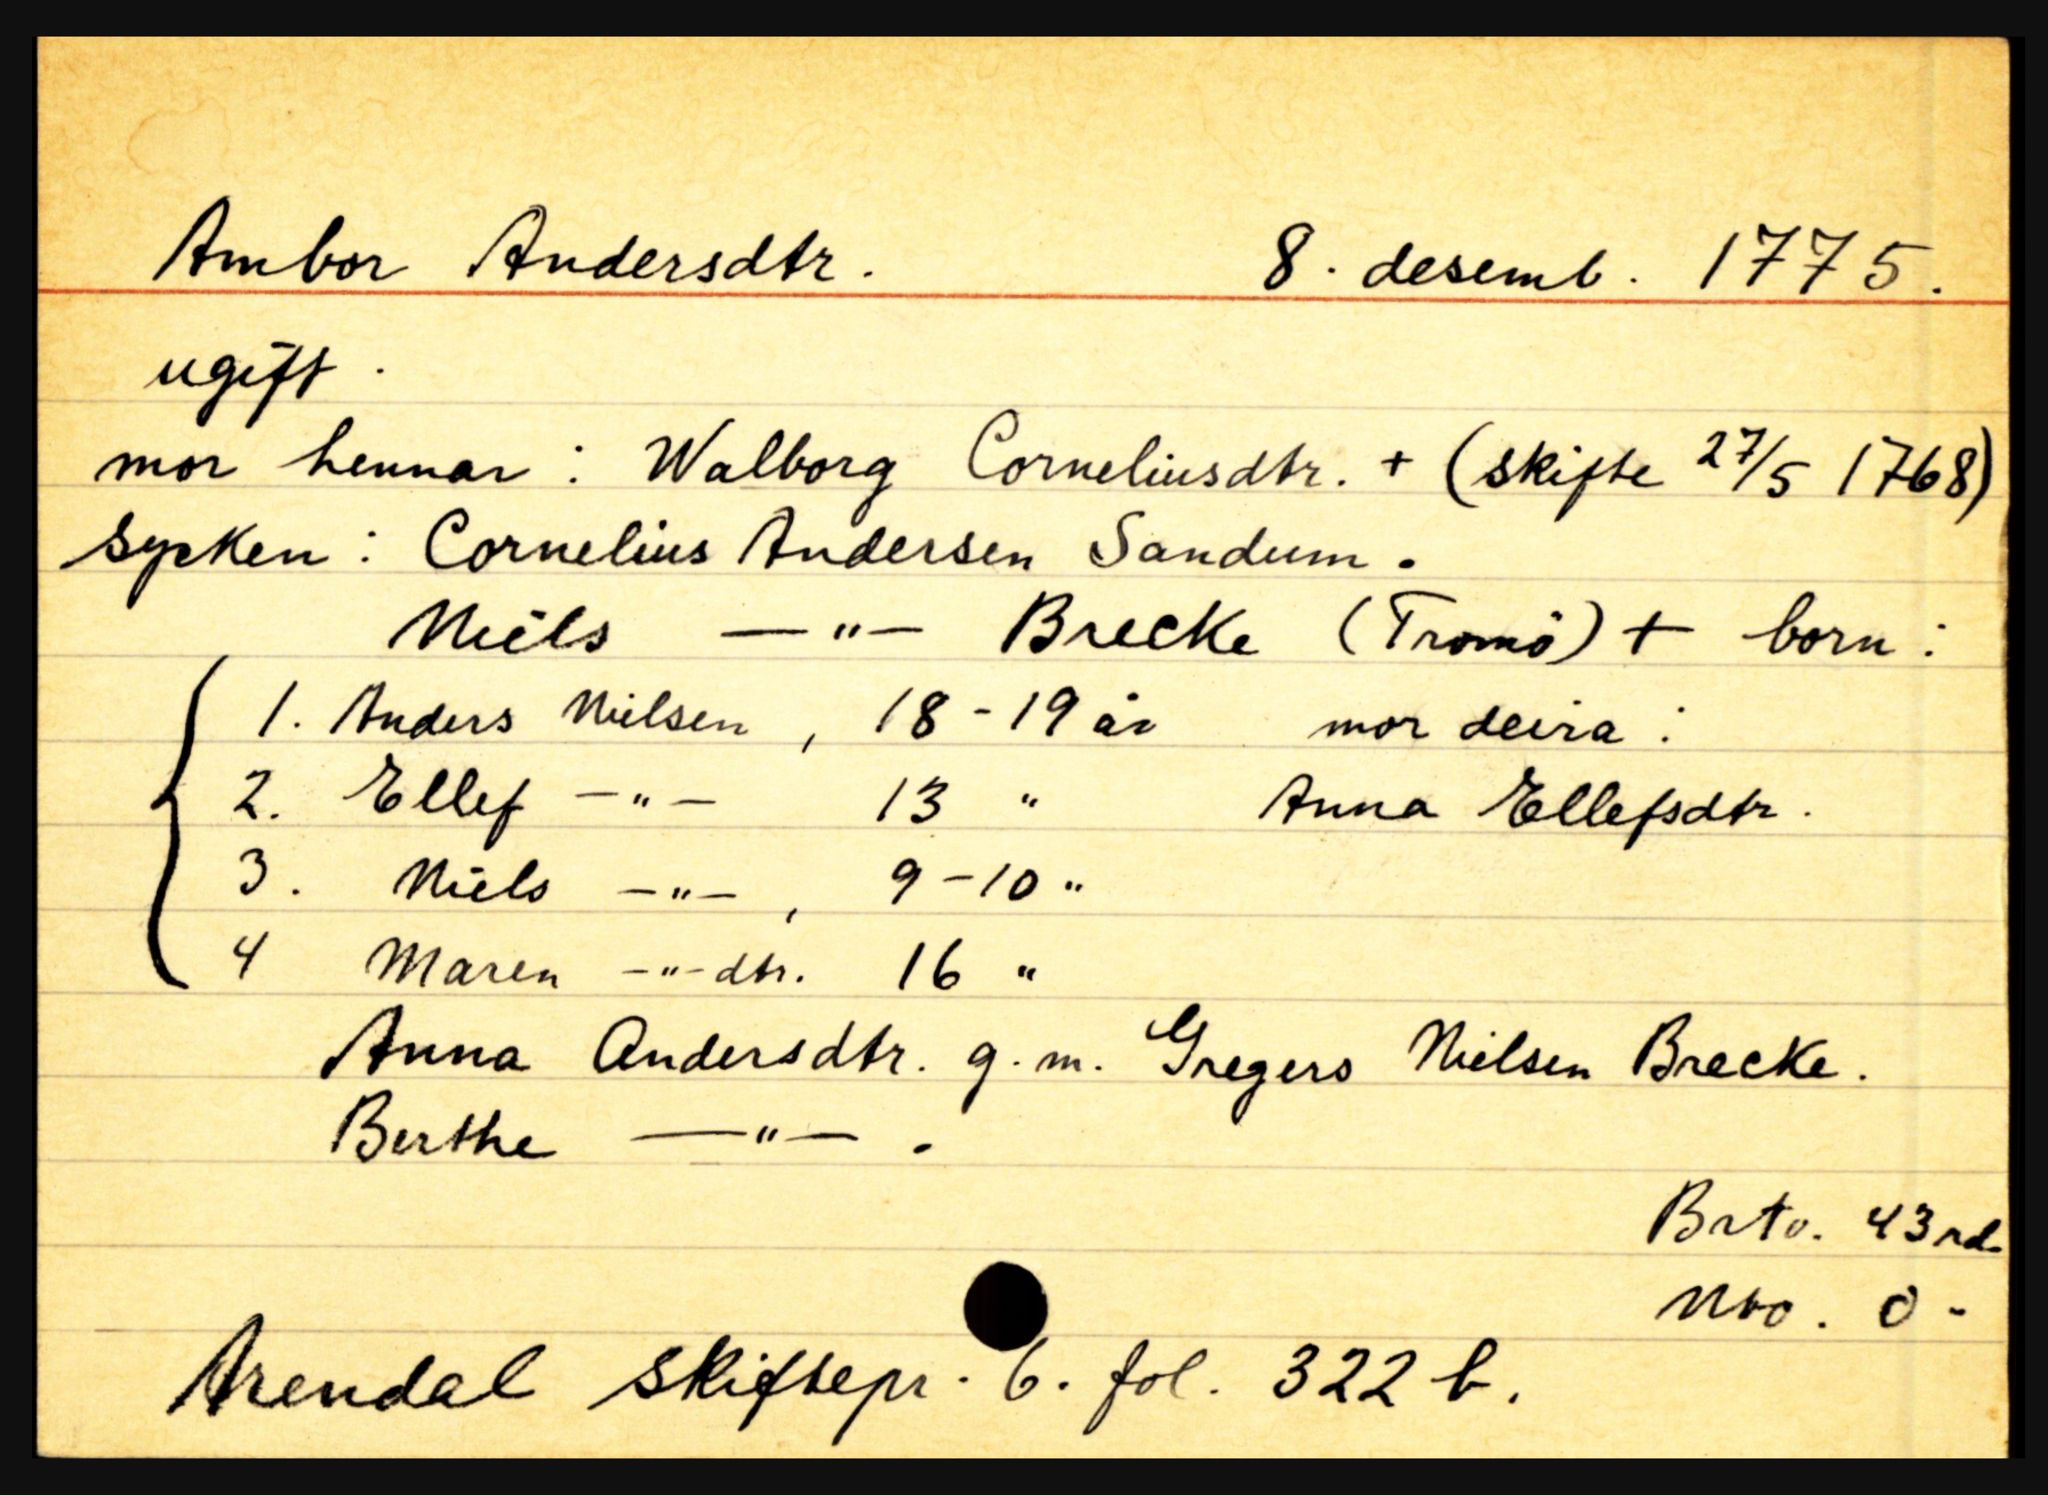 Ambor Andersdtr. 8. desemb. 1775.
ugift.
mor hennar: Walborg Corneliusdtr. + (skifte 27/5 1768)
sysken: Cornelius Andersen Sandum.
Niels —"— Brecke (Tromö) + born:
1. Anders Nielsen, 18-19 år mor deira:
2. Ellef —"— 13 " Anna Ellefsdtr.
3. Niels —"—, 9-10 "
4 Maren —"—dtr. 16 "
Anna Andersdtr. g.m. Gregers Nielsen Brecke.
Berthe —"— .
Brto. 43 rd.
Nto. 0 -
Arendal skiftepr. 6. fol. 322 b.